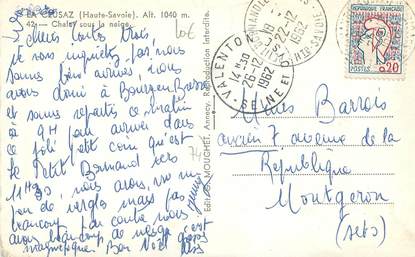 LA CLUSAZ (Haute-Savoie). Alt. 1040 m.
42 - Chalet sous la neige.
10€
Chères toutes trois
Ne vous inquiétez pas nous
sommes bien arrivés, nous
avons dormi à Bourg en Bresse
et sommes repartis ce matin
à 9H pour arriver dans
ce joli petit coin qu'est
le Petit Bornand vers
11H30, nous avons eu un
peu de verglas mais pas
beaucoup par contre nous
avons beaucoup de neige c'est
magnifique. Bon Noël gros
Edit. MOUGHET, Annecy. Reproduction interdite.
LE PETIT BORNAND LES
HTE SAVOIE
18 H
22-12
1962
VALENTON
14 H 30
26-12
1962
SEINE ET O
REPUBLIQUE FRANÇAISE
POSTES
0,20
Melles Barrois
ancien 7 avenue de la
République
Montgeron
(S et O)